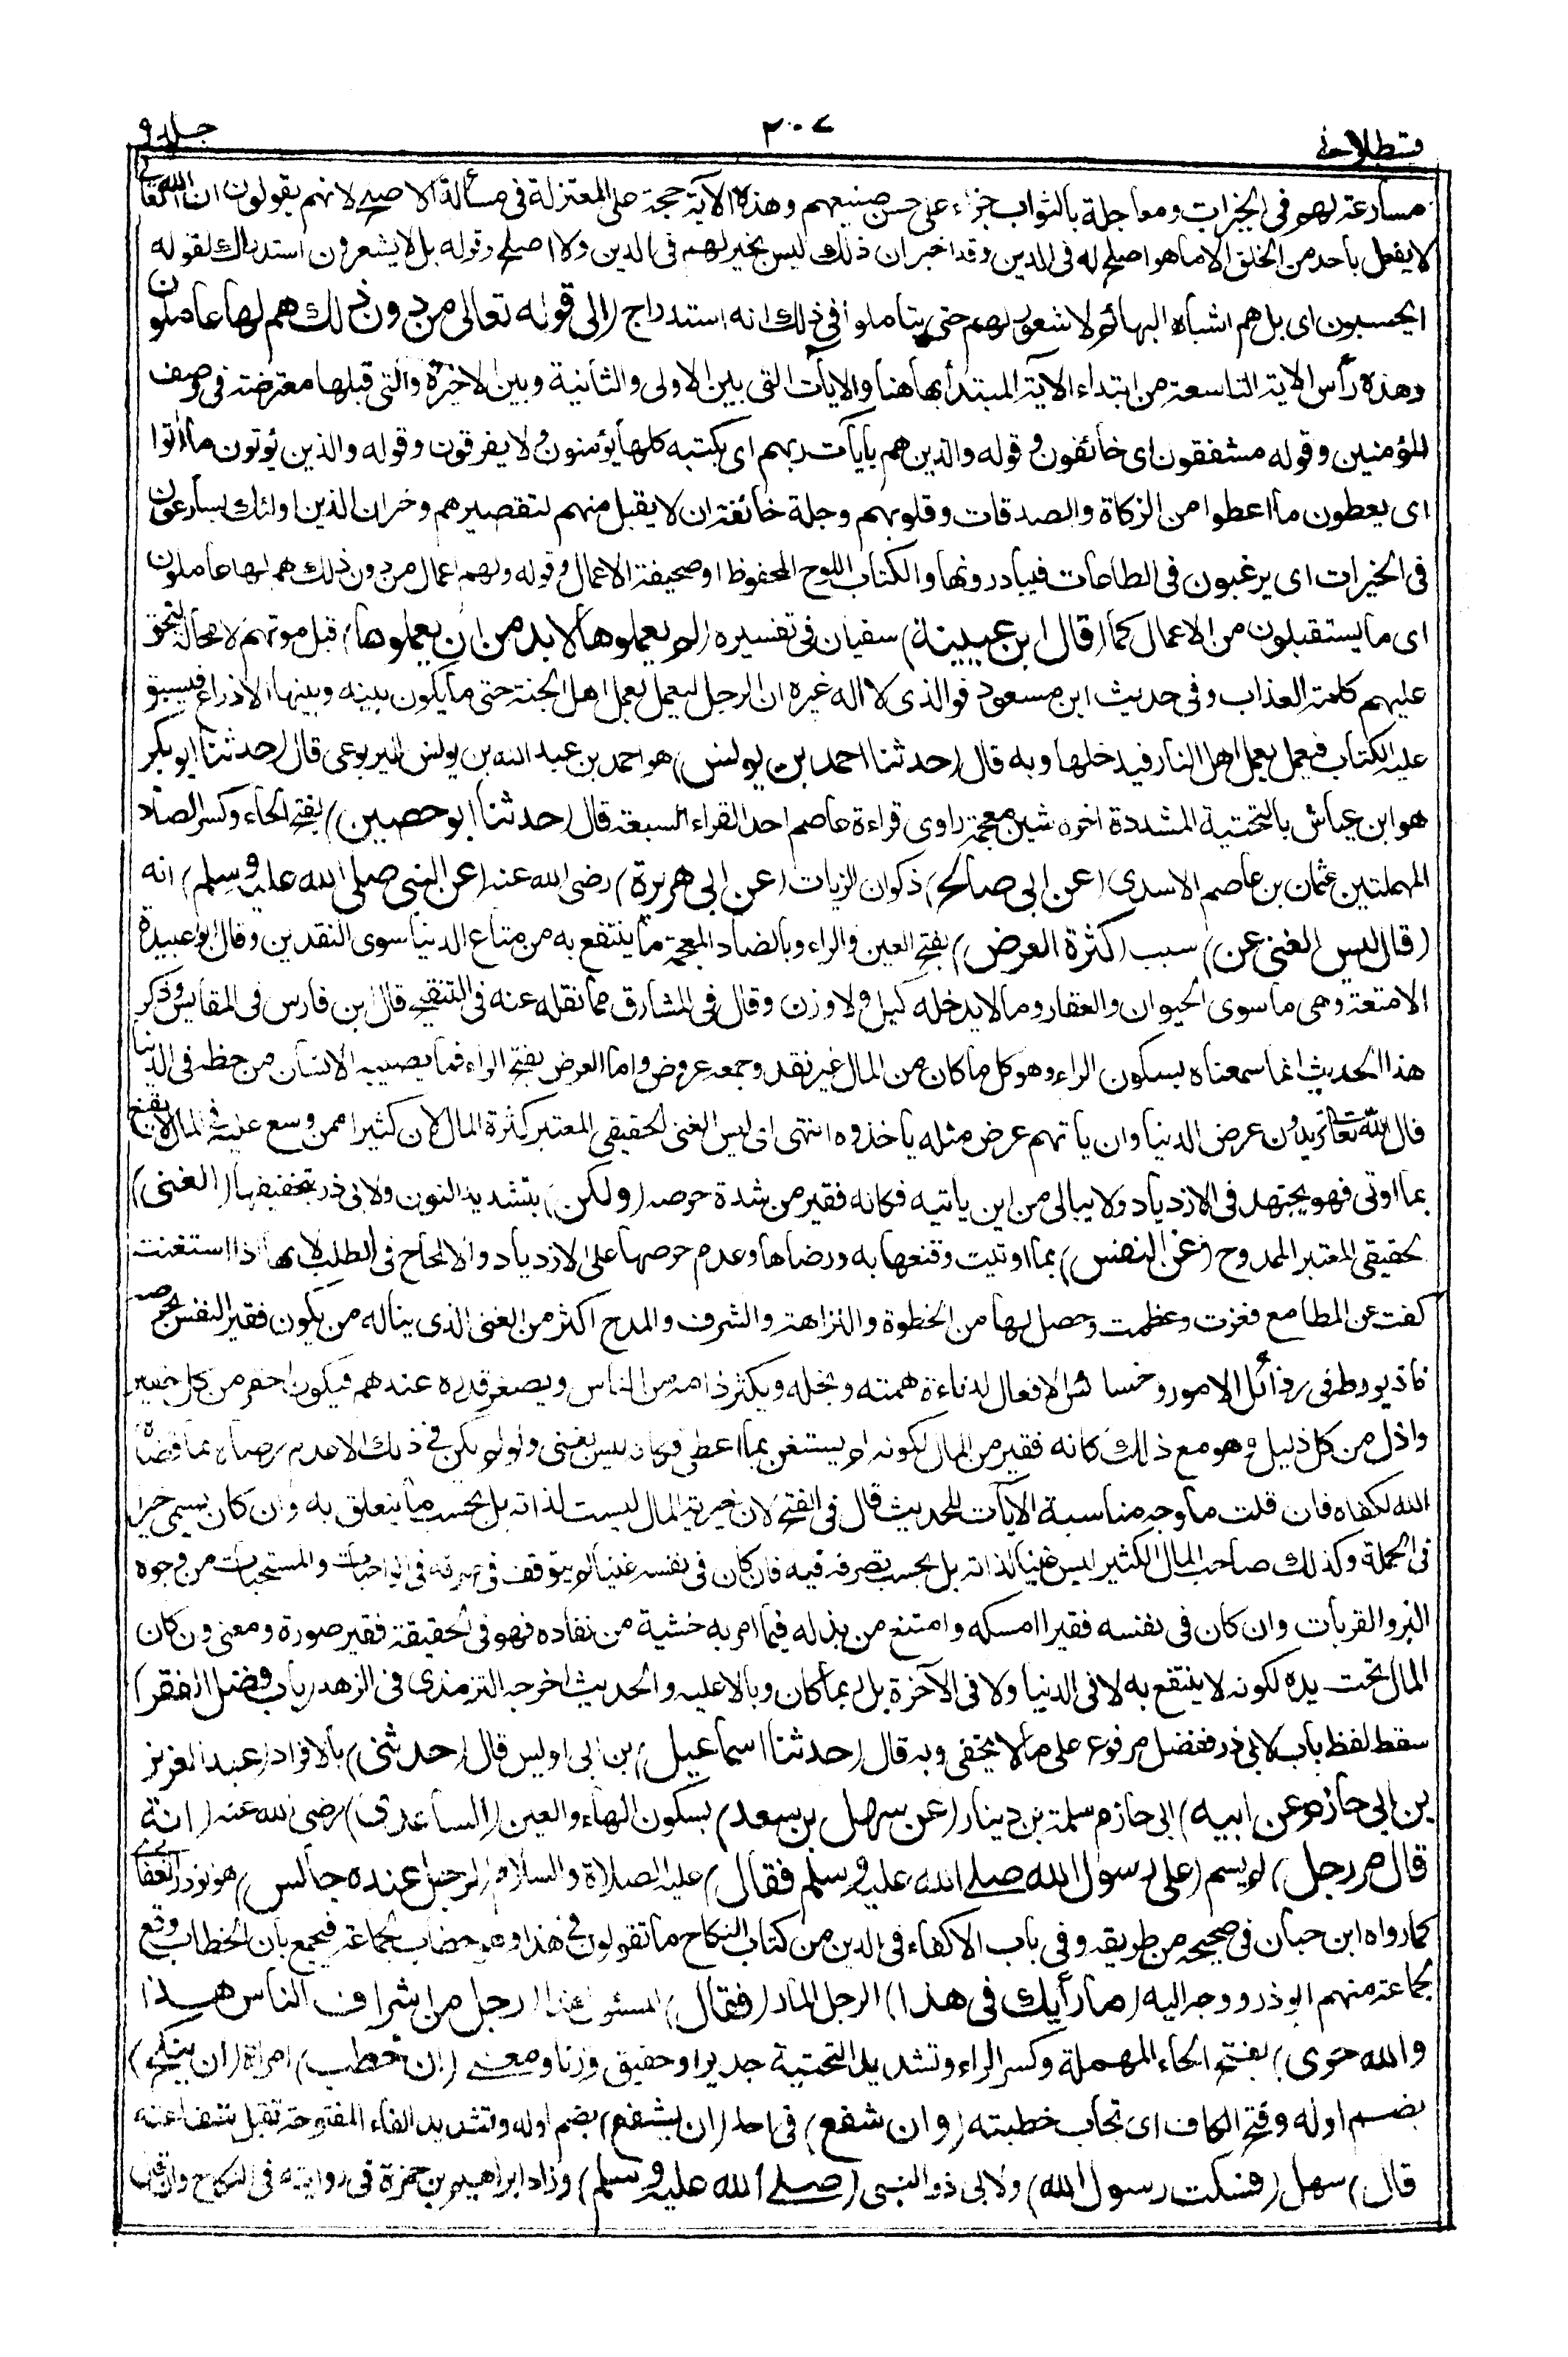 قسطلاني
٣٠٧
جلد ٩
مسارعة لهم في الخيرات ومعاجلة بالثواب جزاء على حسن صنيعهم وهذه الآية حجة على المعتزلة في مسألة الاصلح لانهم يقولون ان الله تعالى
لا يفعل باحد من الخلق الا ما هو اصلح له في الدين وقد اخبر ان ذلك ليس بخير لهم في الدين ولا اصلح وقوله بل لا يشعرون استدراك لقوله
ايحسبون اي بل هم اشباه البهائم لا شعور لهم حتى يتأملوا في ذلك انه استدراج (الى قوله تعالى من دون ذلك هم لها عاملون
وهذه رأس الاية التاسعة من ابتداء الآية المبتدأ بها هنا والايات التي بين الاولى والثانية وبين الاخيرة والتي قبلها معترضة في وصف
المؤمنين وقوله مشفقون اي خائفون وقوله والذين هم بآيات ربهم اي بكتبه كلها يؤمنون ولا يفرقون وقوله والذين يؤتون ما اتوا
اي يعطون ما اعطوا من الزكاة والصدقات وقلوبهم وجلة خائفة ان لا يقبل منهم لتقصيرهم وخبر ان الذين اولئك يسارعون
في الخيرات اي يرغبون في الطاعات فيبادرونها والكتاب اللوح المحفوظ او صحيفة الاعمال وقوله ولهم اعمال من دون ذلك هم لها عاملون
اي ما يستقبلون من الاعمال كما (قال ابن عيينة) سفيان في تفسيره (لم يعملوها لا بد من ان يعملوها) قبل موتهم لا محالة لتحق
عليهم كلمة العذاب وفي حديث ابن مسعود فوالذي لا اله غيره ان الرجل ليعمل بعمل اهل الجنة حتى ما يكون بينه وبينها الا ذراع فيسبق
عليه الكتاب فيعمل بعمل اهل النار فيدخلها وبه قال (حدثنا احمد بن يونس) هو احمد بن عبد الله بن يونس اليربوعي قال (حدثنا ابو بكر
هو ابن عياش بالتحتية المشددة اخره شين معجمة راوي قراءة عاصم احد القراء السبعة قال (حدثنا ابو حصين) بفتح الحاء وكسر الصاد
المهملتين عثمان بن عاصم الاسدي (عن ابي صالح) ذكوان الزيات (عن ابي هريرة) رضي الله عنه (عن النبي صلى الله عليه وسلم) انه
(قال ليس الغنى عن) سبب (كثرة العرض) بفتح العين والراء وبالضاد المعجمة ما ينتفع به من متاع الدنيا سوى النقدين وقال ابو عبيدة
الامتعة وهي ما سوى الحيوان والعقار وما لا يدخله كيل ولا وزن وقال في المشارق مما نقله عنه في التنقيح قال ابن فارس في المقاييس وذكر
هذا الحديث انما سمعناه بسكون الراء وهو كل ما كان من المال غير نقد وجمعه عروض واما العرض بفتح الراء فما يصيبه الانسان من حظه في الدنيا
قال الله تعالى تريدون عرض الدنيا وان يأتهم عرض مثله يأخذوه انتهى اي ليس الغنى الحقيقي المعتبر كثرة المال لان كثيرا ممن وسع عليه في المال لا يقنع
بما اوتي فهو يجتهد في الازدياد ولا يبالي من اين يأتيه فكأنه فقير من شدة حرصه (ولكن) بتشديد النون ولابي ذر بتخفيفها (الغنى)
لحقيقي المعتبر الممدوح (غنى النفس) بما اوتيت وقنعها به ورضاها وعدم حرصها على الازدياد والالحاح في الطلب لانها اذا استغنت
كفت عن المطامع فعزت وعظمت وحصل لها من الحظوة والنزاهة والشرف والمدح اكثر من الغنى الذي يناله من يكون فقير النفس لحرصه
فانه يورطه في رذائل الامور وخسائس الافعال لدناءة همته وبخله ويكثر ذامه من الناس ويصغر قدره عندهم فيكون احقر من كل حقير
واذل من كل ذليل وهو مع ذلك كأنه فقير من المال لكونه لم يستغن بما اعطي فكأنه ليس بغني ولو لم يكن في ذلك الا عدم رضاه بما قضاه
الله لكفاه فان قلت ما وجه مناسبة الآيات للحديث قال في الفتح لان خيرية المال ليست لذاته بل بحسب ما يتعلق به وان كان يسمى خيرا
في الجملة وكذلك صاحب المال الكثير ليس غنيا لذاته بل بحسب تصرفه فيه فان كان في نفسه غنيا لم يتوقف في صرفه في الواجبات والمستحبات من وجوه
البر والقربات وان كان في نفسه فقيرا امسكه وامتنع من بذله فيما امر به خشية من نفاده فهو في الحقيقة فقير صورة ومعنى وان كان
المال تحت يده لكونه لا ينتفع به لا في الدنيا ولا في الآخرة بل ربما كان وبالا عليه والحديث اخرجه الترمذي في الزهد (باب فضل الفقر)
سقط لفظ باب لابي ذر ففضل مرفوع على ما لا يخفى وبه قال (حدثنا اسماعيل) بن ابي اويس قال (حدثني) بالافراد (عبد العزيز
بن ابي حازم عن ابيه) ابي حازم سلمة بن دينار (عن سهل بن سعد) بسكون الهاء والعين (الساعدي) رضي الله عنه (انه
قال مر رجل) لم يسم (على رسول الله صلى الله عليه وسلم فقال) عليه الصلاة والسلام (لرجل عنده جالس) هو ابو ذر الغفاري
كما رواه ابن حبان في صحيحه من طريقه وفي باب الاكفاء في الدين من كتاب النكاح ما تقولون في هذا وهو خطاب لجماعة فيجمع بان الخطاب وقع
لجماعة منهم ابو ذر ووجه اليه (ما رأيك في هذا) الرجل المار (فقال) المسئول هذا (رجل من اشراف الناس هذا
والله حري) بفتح الحاء المهملة وكسر الراء وتشديد التحتية جدير او حقيق وزنا ومعنى (ان خطب) امرأة (ان ينكح)
بضم اوله وفتح الكاف اي تجاب خطبته (وان شفع) في احد (ان يشفع) بضم اوله وتشديد الفاء المفتوحة تقبل شفاعته
قال) سهل (فسكت رسول الله) ولابي ذر النبي (صلى الله عليه وسلم) وزاد ابراهيم بن حمزة في روايته في النكاح وان قال